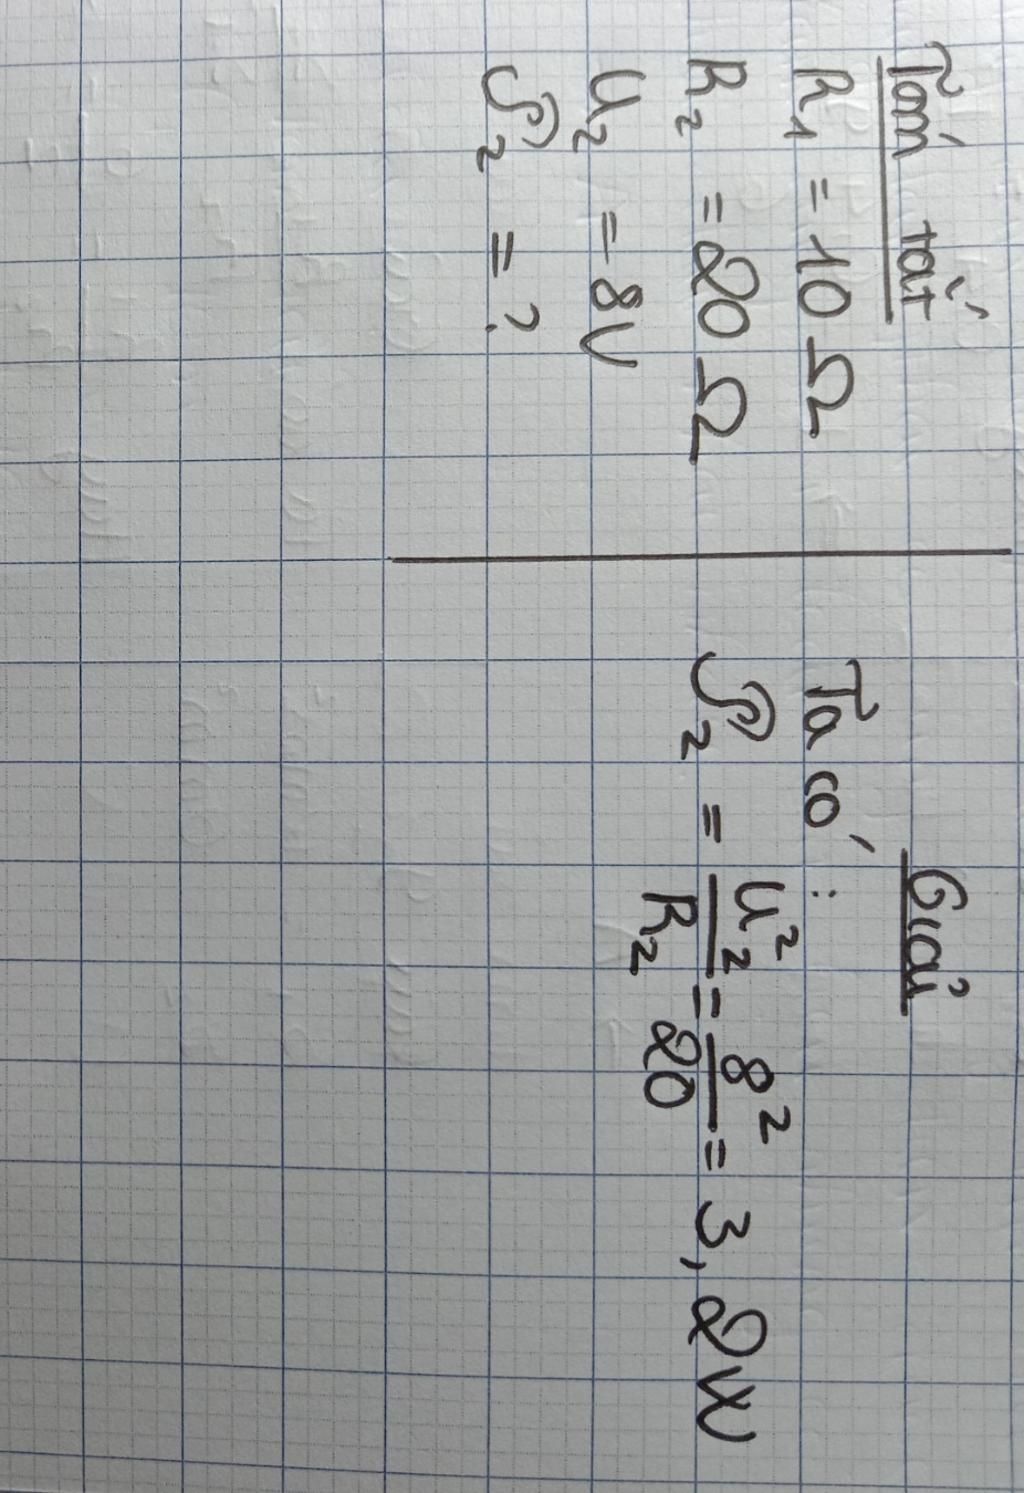 Tóm tắt
R₁ = 10 Ω
R₂ = 20 Ω
U₂ = 8V
𝒫₂ = ?
Giải
Ta có :
𝒫₂ = U₂²/R₂ = 8²/20 = 3,2W